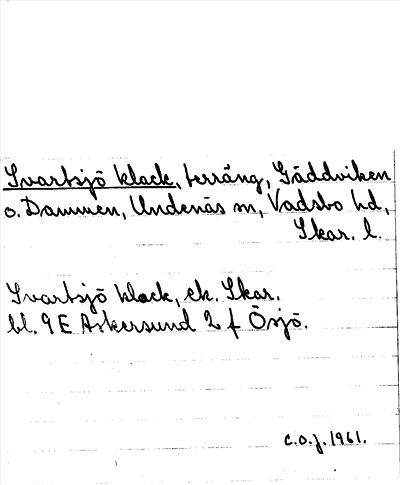 Svartsjö klack, terräng, Gäddviken
o. Dammen, Undenäs sn, Vadsbo hd,
Skar. l.
Svartsjö klack, ek. Skar.
bl. 9 E Askersund 2 f Ösjö.
c.o.j. 1961.